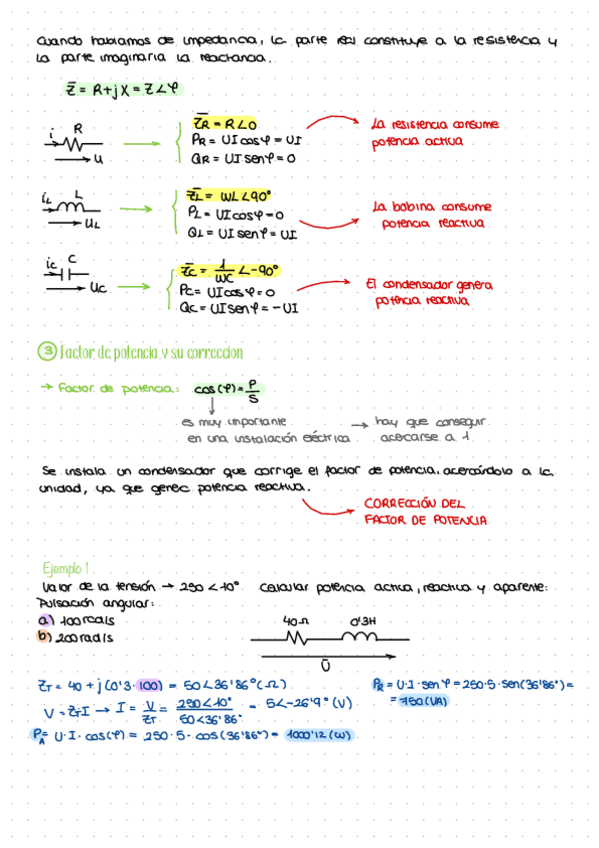 Cuando hablamos de impedancia, la parte real constituye a la resistencia y
la parte imaginaria la reactancia.
Z̄ = R+jX = Z∠φ
i R
u
Z̄R = R∠0
PR = UIcosφ = UI
QR = UIsenφ = 0
La resistencia consume
potencia activa
iL L
UL
Z̄L = WL∠90°
PL = UIcosφ = 0
QL = UIsenφ = UI
La bobina consume
potencia reactiva
ic C
Uc
Z̄C = 1/WC ∠-90°
PC = UIcosφ = 0
QC = UIsenφ = -UI
El condensador genera
potencia reactiva
3 Factor de potencia y su correccion
→ Factor de potencia: cos(φ) = P/S
es muy importante
en una instalación eléctrica
→ hay que conseguir
acercarse a 1.
Se instala un condensador que corrige el factor de potencia, acercándolo a la
unidad, ya que genera potencia reactiva.
CORRECCIÓN DEL
FACTOR DE POTENCIA
Ejemplo 1
Valor de la tensión → 250∠10° Calcular potencia activa, reactiva y aparente:
Pulsación angular:
a) 100rad/s
b) 200rad/s
40Ω 0'3H
Ū
ZT = 40 + j(0'3·100) = 50∠36'86° (Ω)
V = ZT·I → I = V/ZT = 250∠10°/50∠36'86° = 5∠-26'9° (V)
PA = U·I·cos(φ) = 250·5·cos(36'86°) = 1000'12(W)
PR = U·I·senφ = 250·5·sen(36'86°) =
= 750(VA)